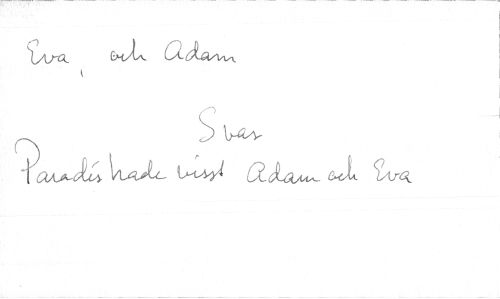 Eva, och Adam
Svar
Paradis hade visst Adam och Eva